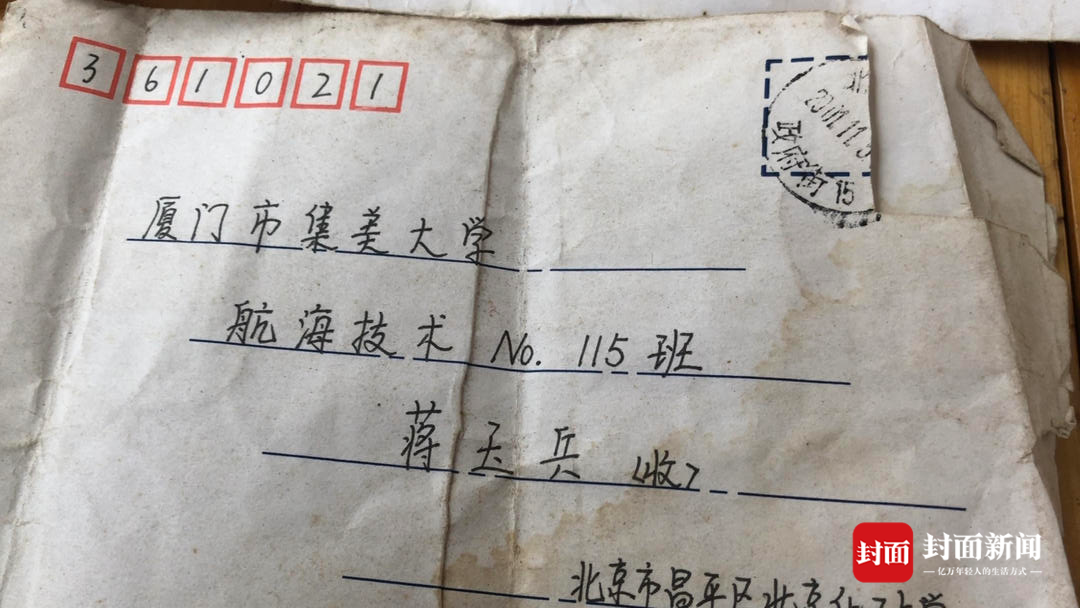 361021
2001.11.
政府街15
厦门市集美大学
航海技术 No. 115班
蒋玉兵 (收)
北京市昌平区北京化工大学
封面 封面新闻
亿万年轻人的生活方式